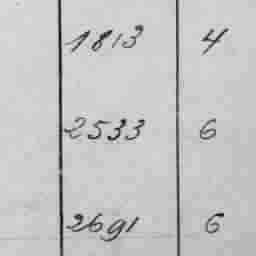 1813 4
2533 6
2691 6